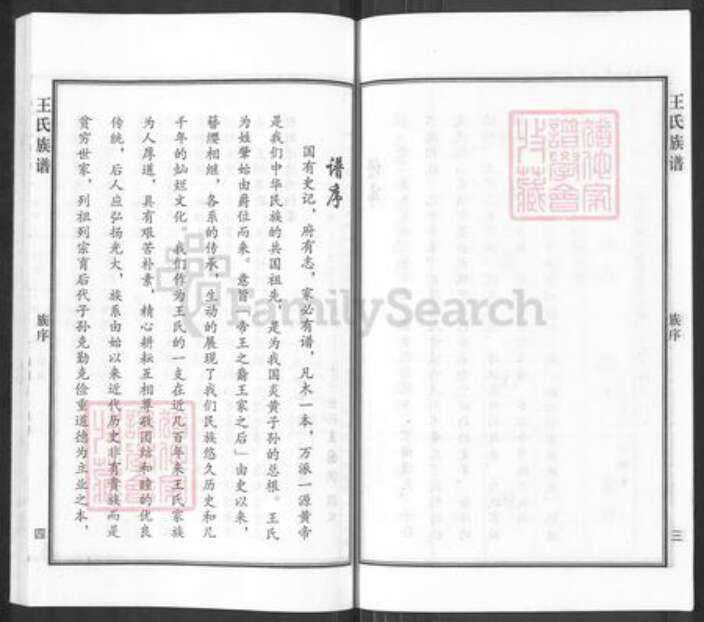 王氏族谱
族序
三
谱序
国有史记，府有志，家必有谱，凡木一本，万派一源黄帝
是我们中华民族的共国祖先，是为我国炎黄子孙的总根。王氏
为姓肇始由爵位而来。意旨「帝王之裔王家之后」由史以来，
簪缨相继，各系的传承，生动的展现了我们民族悠久历史和几
千年的灿烂文化，我们作为王氏的一支在近几百年来王氏家族
为人厚道，具有艰苦朴素，精心耕耘互相尊敬团结和睦的优良
传统，后人应弘扬光大，族系由始以来近代历史非有贵族而是
贫穷世家，列祖列宗育后代子孙克勤克俭重道德为立业之本，
王氏族谱
族序
四
FamilySearch